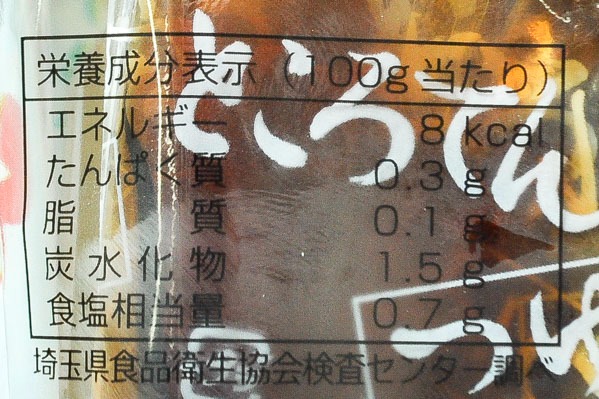 栄養成分表示（100g当たり）
エネルギー 8kcal
たんぱく質 0.3g
脂質 0.1g
炭水化物 1.5g
食塩相当量 0.7g
埼玉県食品衛生協会検査センター調べ
ところてん